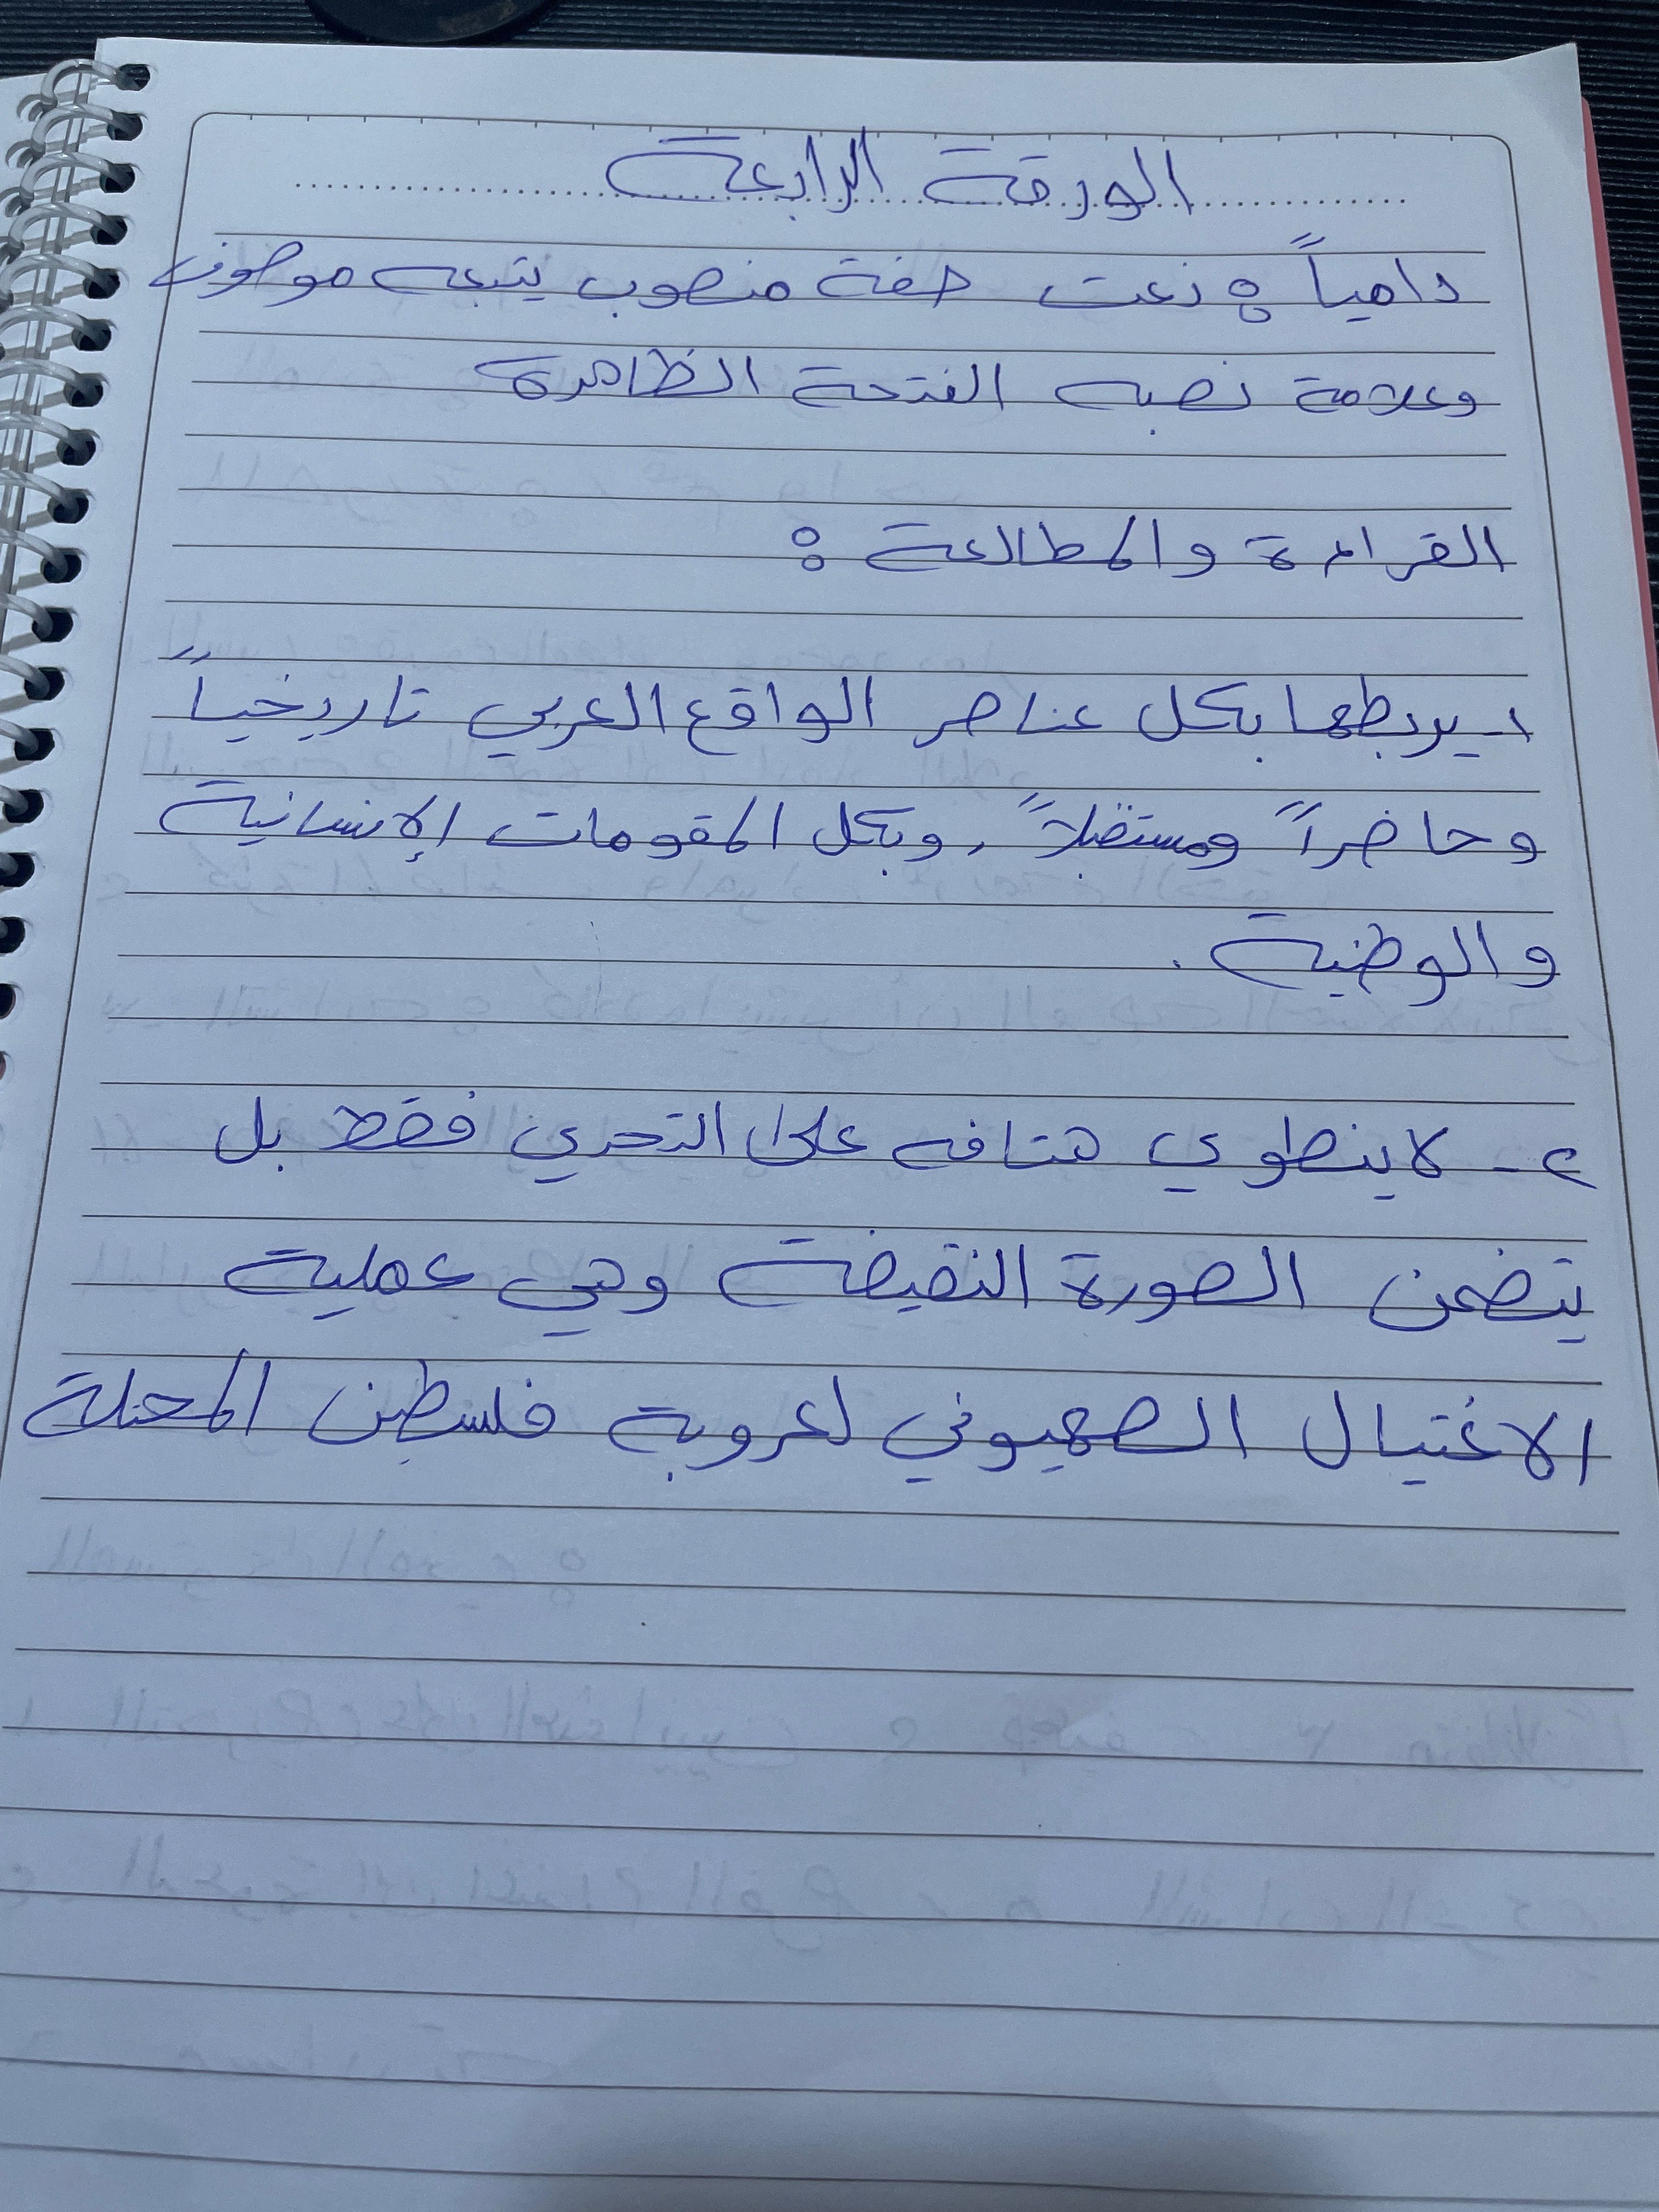 الورقة الرابعة
دامياً : نعت صفة منصوب يتبعه موصوف
وعلامة نصبه الفتحة الظاهرة
القراءة والمطالعة :
١- يربطها بكل عناصر الواقع العربي تاريخياً
وحاضراً ومستقبلاً ، وبكل المقومات الإنسانية
والوطنية .
٢- لا ينطوي هتافه على التحدي فقط بل
يتضمن الصورة النقيضة وهي عملية
الاغتيال الصهيوني لعروبة فلسطين المحتلة